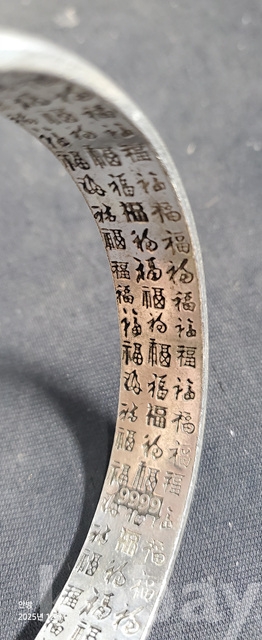 福福福
福福福
福福福
福福福
福福福
福福福
福福福
福福福
福福福
福福福
福福福
福福福
9999
福福
福福
福福福
안녕
2025년